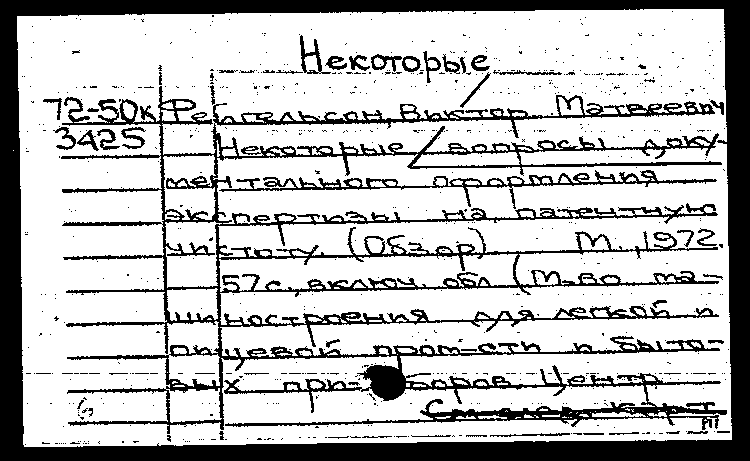 Некоторые
72-50к Фейгельсон, Виктор Матвеевич
3425 Некоторые вопросы доку-
ментального оформления
экспертизы на патентную
чистоту. (Обзор) М., 1972.
57 с., включ. обл (М-во ма-
шиностроения для легкой и
пищевой пром-сти и быто-
вых при-боров. Центр
См след. карт
6